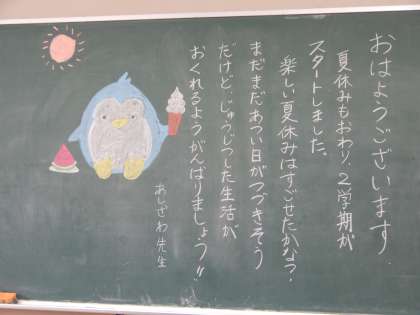 おはようございます。
夏休みもおわり、2学期が
スタートしました。
楽しい夏休みはすごせたかな?
まだまだあつい日がつづきそう
だけど、じゅうじつした生活が
おくれるようがんばりましょう!!
あしざわ先生